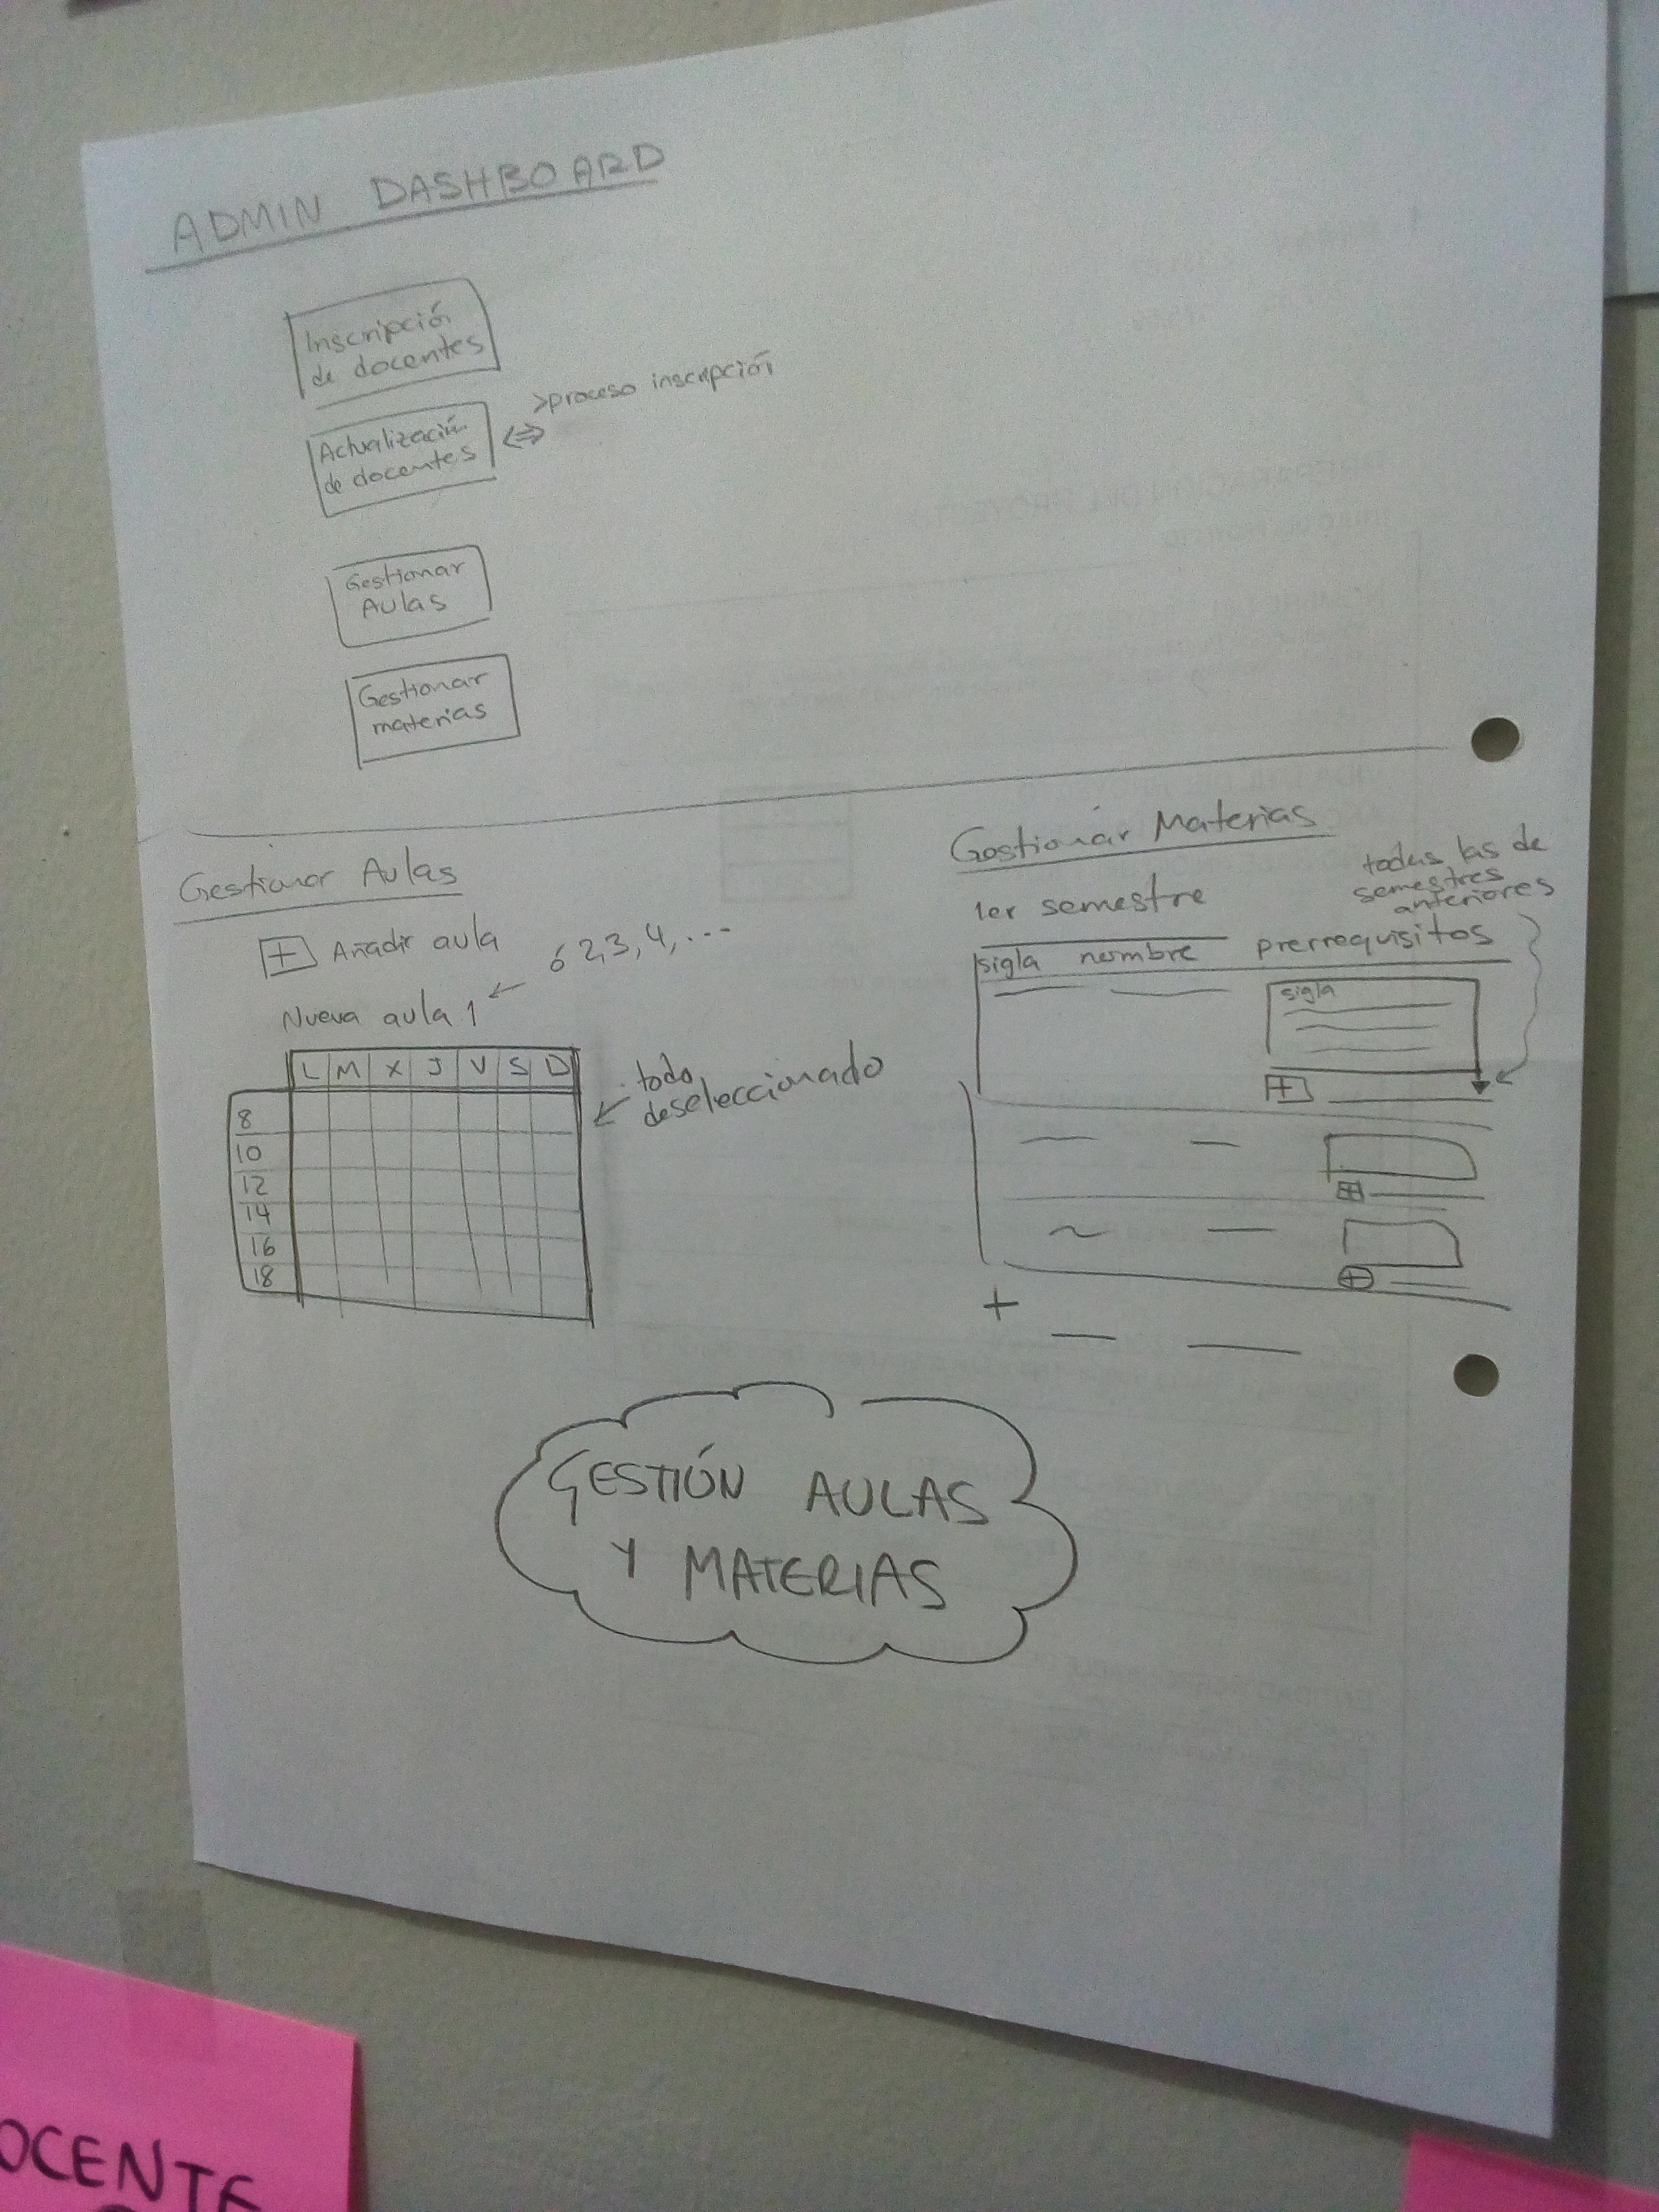 ADMIN DASHBOARD
Inscripción
de docentes
Actualización
de docentes
<=> >proceso inscripción
Gestionar
Aulas
Gestionar
materias
Gestionar Aulas
+ Añadir aula
Nueva aula 1 ← ó 2,3,4,...
L M X J V S D
8
10
12
14
16
18
← todo
deseleccionado
Gestionar Materias
1er semestre
todas las de
semestres
anteriores
sigla nombre prerrequisitos
sigla
+
+
+
+
GESTIÓN AULAS
Y MATERIAS
OCENTE